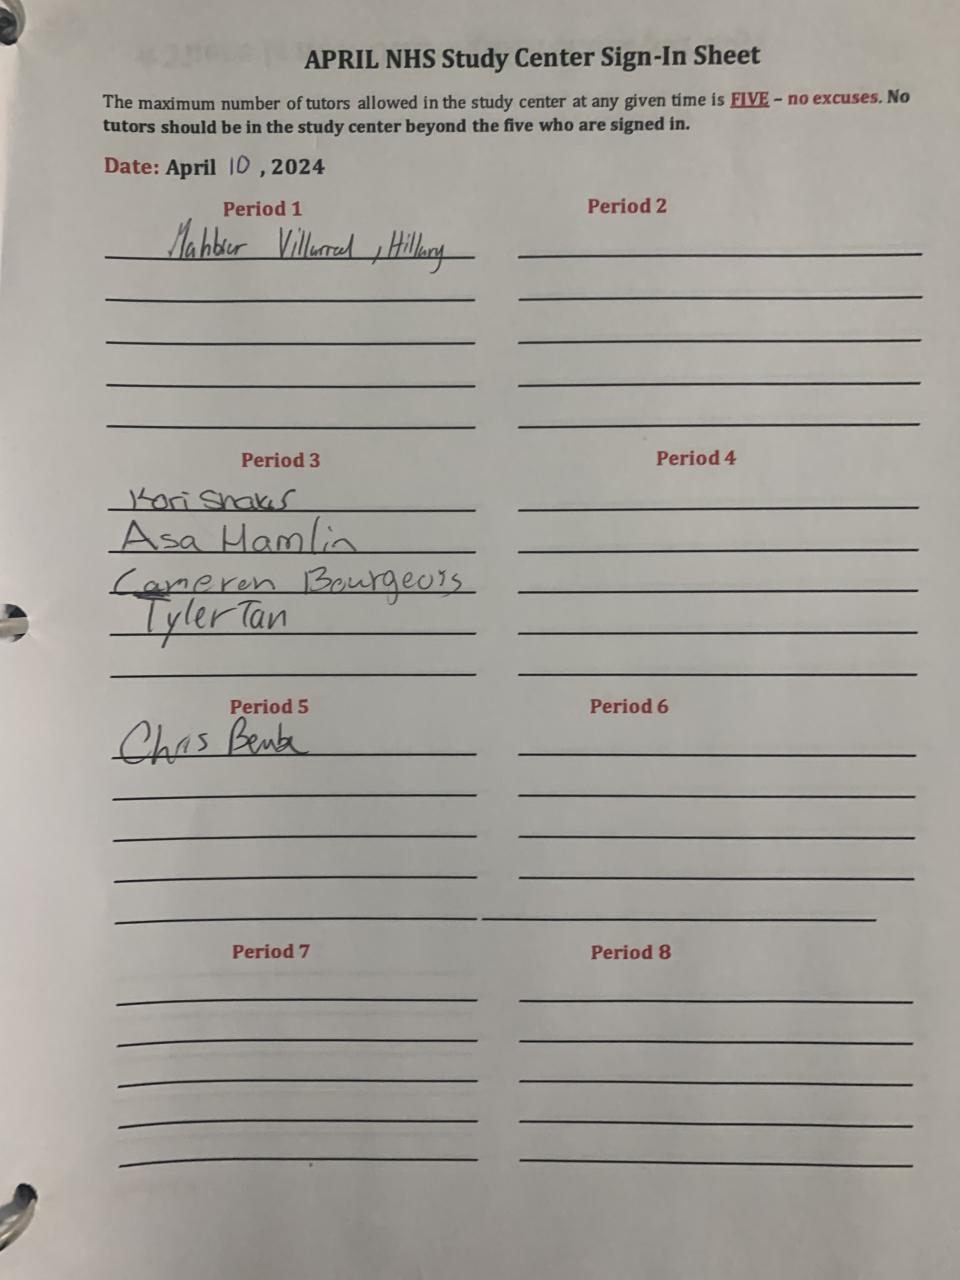 APRIL NHS Study Center Sign-In Sheet
The maximum number of tutors allowed in the study center at any given time is FIVE – no excuses. No
tutors should be in the study center beyond the five who are signed in.
Date: April 10, 2024
Period 1
Villarreal, Hillary
Period 2
Period 3
Kori
Asa Hamlin
Cameren Bourgeois
Tyler Tan
Period 4
Period 5
Chris
Period 6
Period 7
Period 8